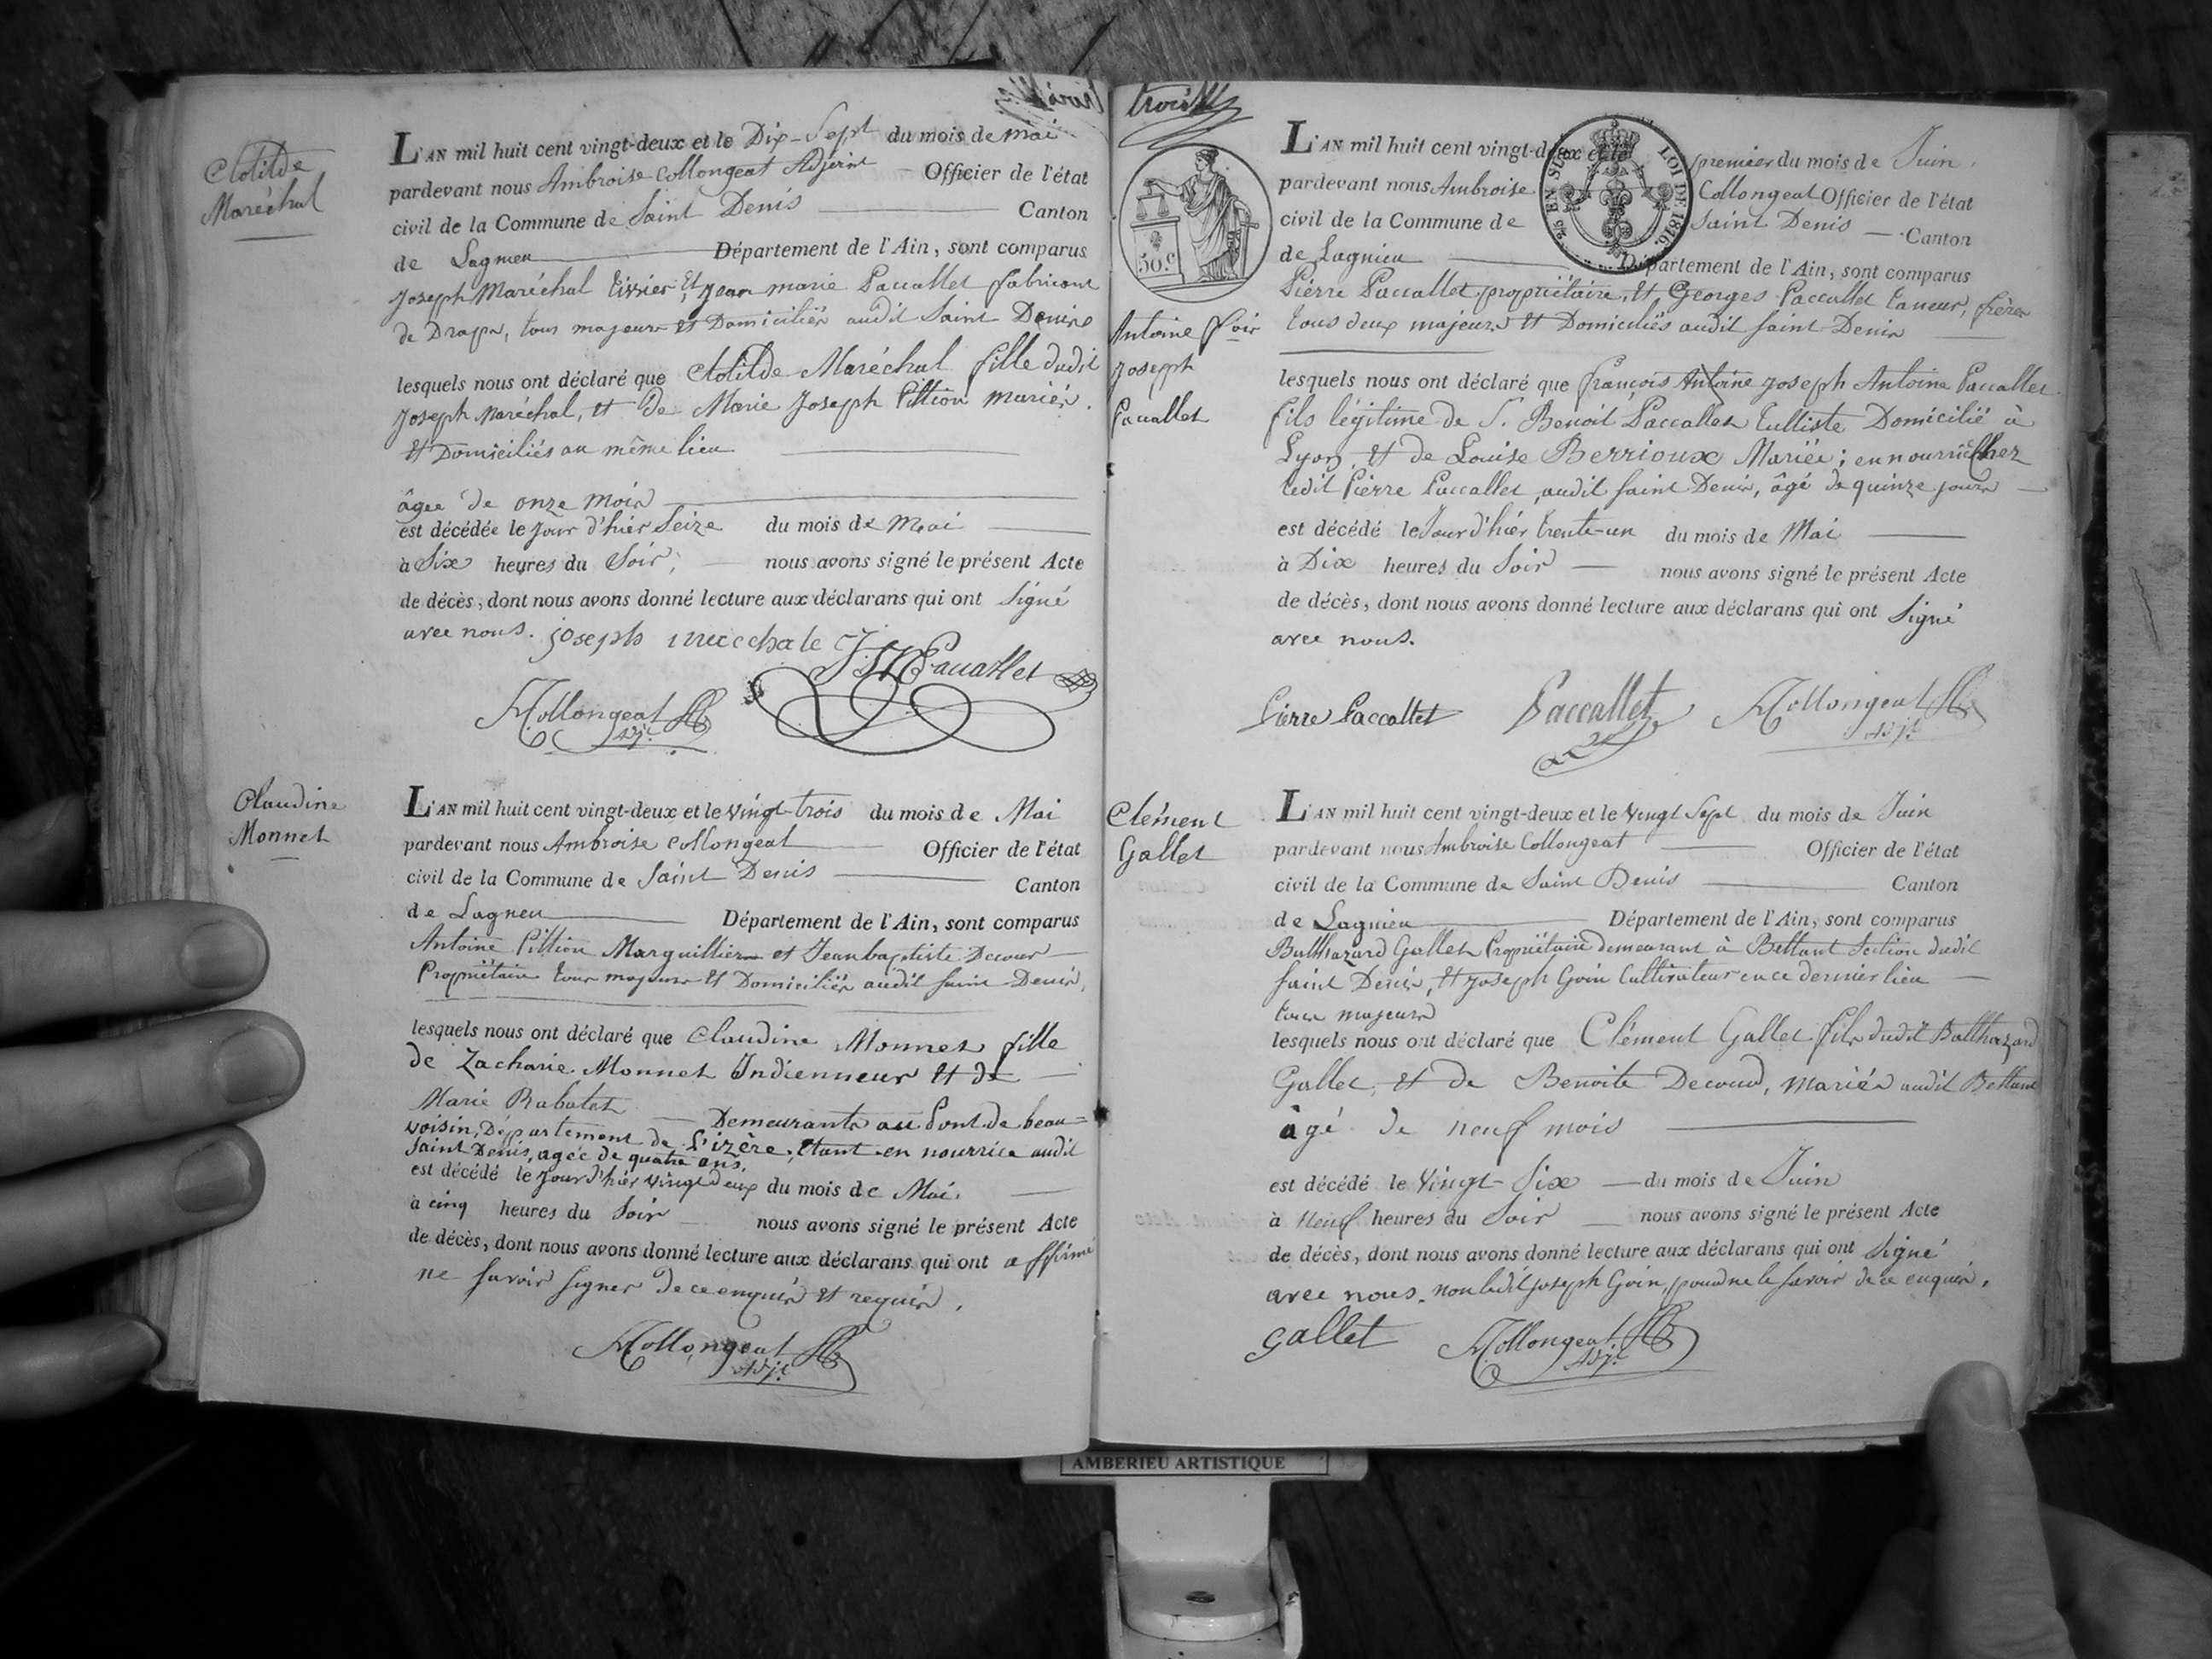 Clotilde
Maréchal
L'AN mil huit cent vingt-deux et le Dix-Sept du mois de mai
pardevant nous Ambroise Collongeat Adjoint Officier de l'état
civil de la Commune de Saint Denis Canton
de Lagnieu Département de l'Ain, sont comparus
Joseph Maréchal Tixier, Et Jean marie Paccallet fabricant
de Draps, tous majeurs et Domiciliés audit Saint Denis
lesquels nous ont déclaré que Clotilde Maréchal fille dudit
Joseph Maréchal, et de Marie Joseph Pittion mariés
Et Domiciliés au même lieu
âgée de onze mois
est décédée le jour d'hier Seize du mois de Mai
à Six heures du Soir, nous avons signé le présent Acte
de décès, dont nous avons donné lecture aux déclarans qui ont Signé
avec nous. joseph marechale Paccallet
Collongeat
Adj.t
Claudine
Monnet
L'AN mil huit cent vingt-deux et le vingt-trois du mois de Mai
pardevant nous Ambroise Collongeat Officier de l'état
civil de la Commune de Saint Denis Canton
de Lagneu Département de l'Ain, sont comparus
Antoine Pittion Marguillier et Jean baptiste Decour
Propriétaire tous majeurs Et Domiciliés audit Saint Denis,
lesquels nous ont déclaré que Claudine Monnet fille
de Zacharie Monnet Indienneur Et de
Marie Rabatet Demeurants au Pont de beau=
voisin, Département de L'izère, Etant en nourrice audit
Saint Denis, agée de quatre ans,
est décédé le jour d'hier vingt deux du mois de Mai
à cinq heures du Soir nous avons signé le présent Acte
de décès, dont nous avons donné lecture aux déclarans qui ont affirmé
ne savoir signer de ce enquis et requis.
Collongeat
Adj.t
trois
50.c
EN SUS
LOI DE 1816.
Antoine
Joseph
Paccallet
L'AN mil huit cent vingt-deux et le premier du mois de Juin
pardevant nous Ambroise Collongeat Officier de l'état
civil de la Commune de Saint Denis Canton
de Lagnieu Département de l'Ain, sont comparus
Pierre Paccallet propriétaire, Et Georges Paccallet taneur, frères
tous deux majeurs Et Domiciliés audit saint Denis
lesquels nous ont déclaré que françois Antoine Joseph Antoine Paccallet
fils légitime de S. Benoit Paccallet Tulliste Domicilié à
Lyon, Et de Louise Berrioux Mariés; en nourrice chez
ledit Pierre Paccallet, audit saint Denis, âgé de quinze jours
est décédé le Jour d'hier trente-un du mois de Mai
à Dix heures du Soir nous avons signé le présent Acte
de décès, dont nous avons donné lecture aux déclarans qui ont Signé
avec nous.
Pierre Paccallet Paccallet Collongeat
Adj.t
Clément
Gallet
L'AN mil huit cent vingt-deux et le vingt Sept du mois de Juin
pardevant nous Ambroise Collongeat Officier de l'état
civil de la Commune de Saint Denis Canton
de Lagnieu Département de l'Ain, sont comparus
Balthazard Gallet Propriétaire demeurant à Bettant Section dudit
saint Denis, Et Joseph Goin Cultivateur en ce dernier lieu
tous majeurs
lesquels nous ont déclaré que Clément Gallet fils dudit Balthazard
Gallet, Et de Benoite Decoud, mariés audit Bettant
âgé de neuf mois
est décédé le Vingt-Six du mois de Juin
à Neuf heures du Soir nous avons signé le présent Acte
de décès, dont nous avons donné lecture aux déclarans qui ont Signé
avec nous. non ledit Joseph Goin, pour ne le savoir de ce enquis.
gallet Collongeat
Adj.t
AMBERIEU ARTISTIQUE